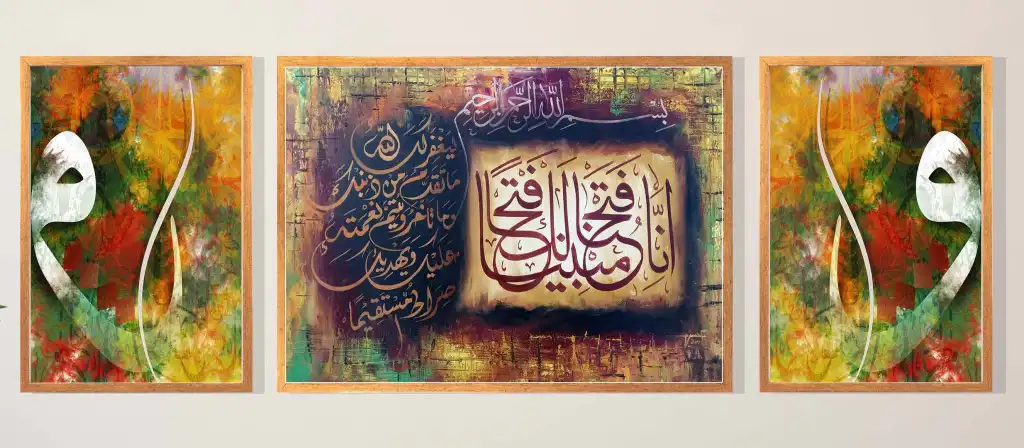 بسم الله الرحمن الرحيم
إنا فتحنا لك فتحا مبينا
ليغفر لك الله
ما تقدم من ذنبك
وما تأخر ويتم نعمته
عليك ويهديك
صراطا مستقيما
و